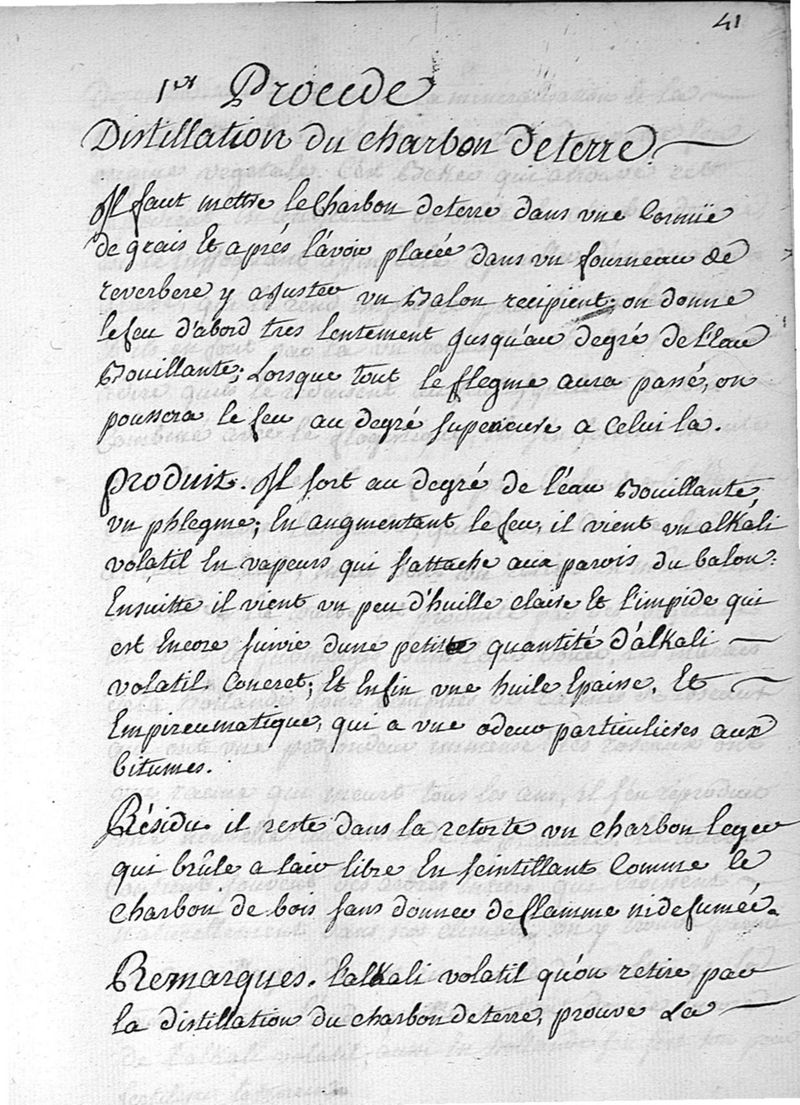 41
1er Procede
Distillation du charbon de terre.
Il faut mettre le Charbon de terre dans une Cornüe
de grais Et aprés l'avoir placée dans un fourneau de
reverbere y ajuster un Balon recipient; on donne
le feu d'abord tres lentement jusqu'au degré de l'Eau
Bouillante; Lorsque tout le flegme aura passé, on
poussera le feu au degré superieure a Celui la.
produit. Il sort au degré de l'éau Bouillante,
un phlegme; En augmentant le feu, il vient un alkali
volatil En vapeurs qui s'attache aux parois du balon.
Ensuitte il vient un peu d'huille claire Et l'impide qui
est Encore suivie dune petite quantité d'alkali
volatil Concret; Et Enfin une huile Epaisse, Et
Empireumatique, qui a une odeur particulieres aux
bitumes.
Résidu il reste dans la retorte un charbon leger
qui brûle a lair libre En scintillant Comme le
charbon de bois sans donner de flamme ni de fumée.
Remarques. l'alkali volatil qu'on retire par
la distillation du charbon de terre, prouve La